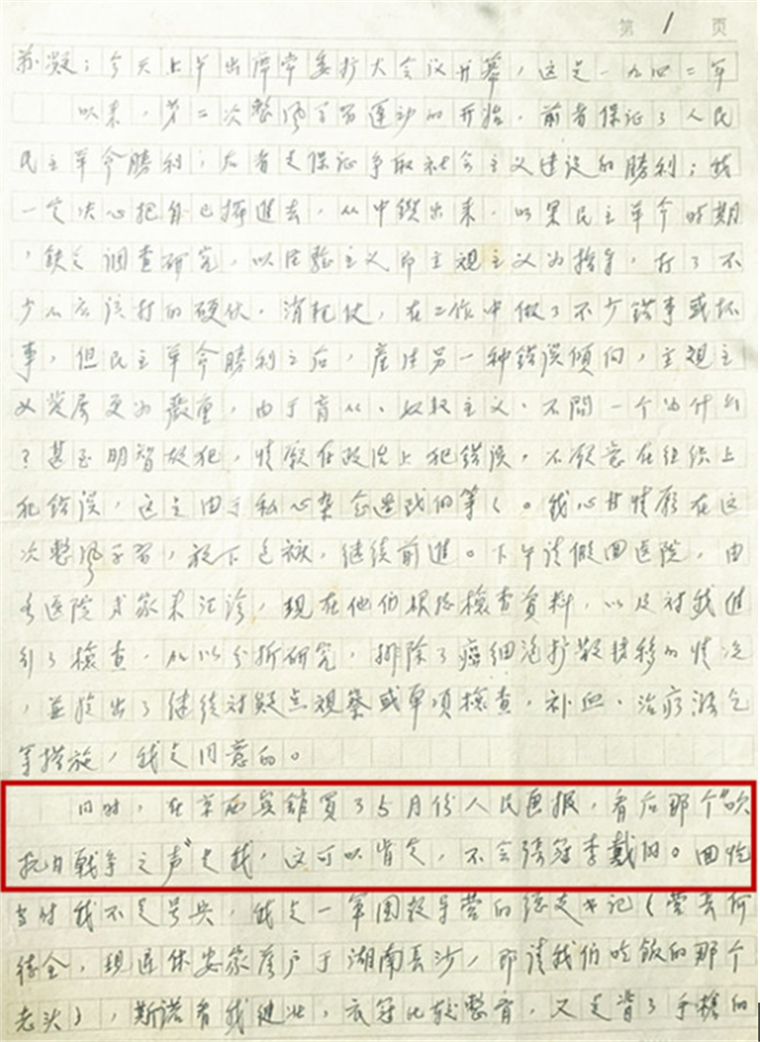 第 1 页
苏凝：今天上午出席常委扩大会议开幕，这是一九四二年
以来，第二次整风学习运动的开始，前者保证了人民
民主革命勝利；后者是保证争取社会主义建设的勝利；我
一定决心把自己摆進去，从中钻出来，如果民主革命时期
，缺乏调查研究，以经验主义即主观主义为指导，打了不
少不应该打的硬仗、消耗仗，在工作中做了不少错事或坏
事，但民主革命勝利之后，產生另一种错误倾向，主观主
义发展更为嚴重，由于盲从、奴隶主义、不問一个为什么
？甚至明智故犯，情願在政治上犯错误，不願意在组织上
犯错误，这主由于私心杂念造成的等等。我心甘情願在这
次整风学習，放下包袱，继续前進。下午请假回医院，由
各医院专家来汇诊，现在他们根据檢查資料，以及对我進
行了檢查，加以分析研究，排除了癌细泡扩散转移的情况
，並提出了继续对疑点观察或单项檢查，补血、治疗
等措施，我是同意的。
同时，在京西宾館買了5月份人民画报，看后那个"吹
抗日戰争之声"是我，这可以肯定，不会張冠李戴的。回忆
当时我不是号兵，我是一军团教导营的总支书记（营長何
德全，现退休安家落户于湖南長沙，即请我们吃飯的那个
老头），斯诺看我健壮，衣冠比较整齊，又是背了手槍的